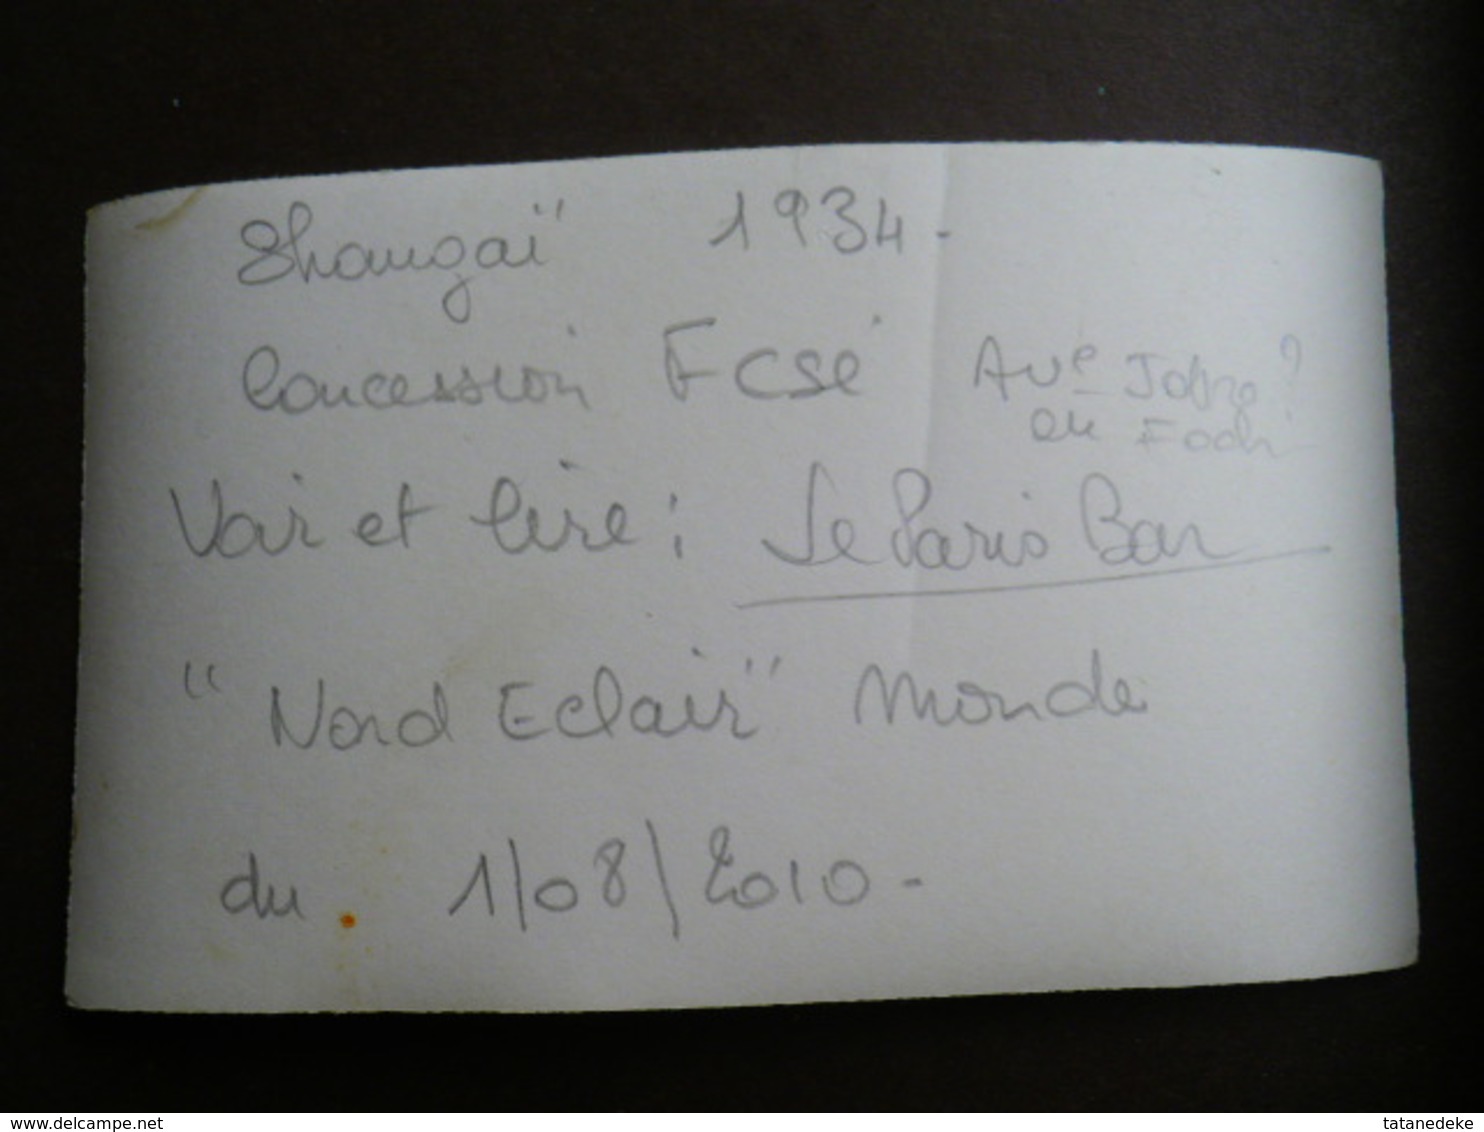 Shangaï 1934.
Concession Fcse Ave Joffre?
ou Foch
Voir et lire: Le Paris Bar
"Nord Eclair" Monde
du. 1/08/2010-
www.delcampe.net
tatanedeke